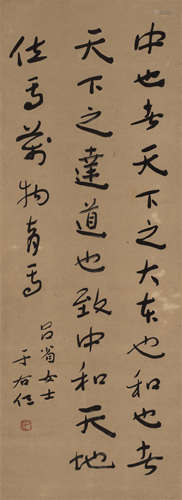 中也者天下之大本也和也者
天下之達道也致中和天地
位焉萬物育焉
呂筍女士
于右任